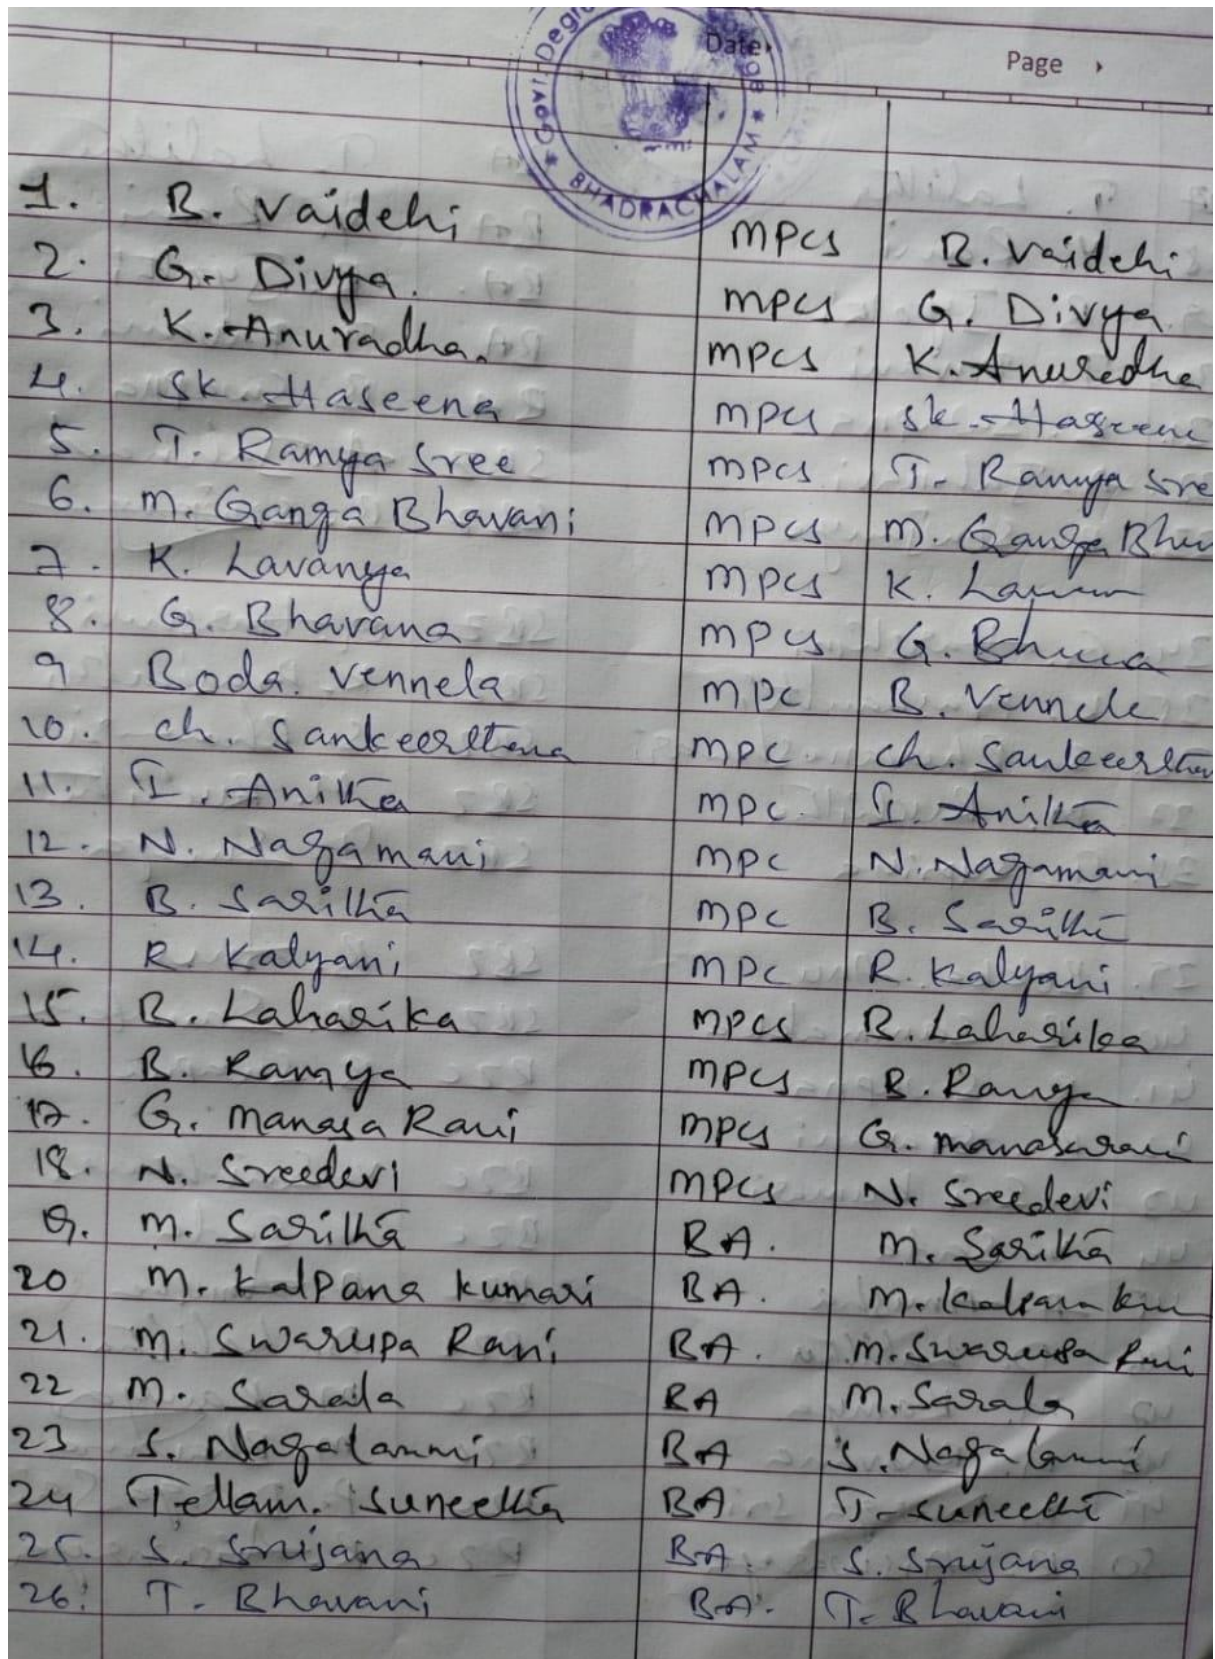 Govt Degr
Date
Page
* BHADRACHALAM *
1. B. Vaidehi MPCS B. Vaidehi
2. G. Divya. MPCS G. Divya
3. K. Anuradha. MPCS K. Anuradha
4. SK. Haseena MPCS Sk. Haseena
5. T. Ramya Sree MPCS T. Ramya Sre
6. M. Ganga Bhavani MPCS M. Ganga
7. K. Lavanya MPCS K.
8. G. Bhavana MPCS G.
9 Boda. Vennela MPC B. Vennela
10. Ch. Sankeerthana MPC. Ch. Sankeerthan
11. I. Anitha MPC. I. Anitha
12. N. Nagamani MPC N. Nagamani
13. B. Saritha MPC B. Saritha
14. R. Kalyani MPC R. Kalyani
15. B. Laharika MPCS B. Laharika
16. B. Ramya MPCS B. Ramya
17. G. Manasa Rani MPCS G. Manasarani
18. N. Sreedevi MPCS N. Sreedevi
19. M. Saritha BA. M. Saritha
20 M. Kalpana Kumari BA. M. Kalpana
21. M. Swarupa Rani BA. M. Swarupa Rani
22 M. Sarala BA M. Sarala
23 S. Nagalaxmi BA S. Nagalaxmi
24 Tellam. Suneetha BA T. Suneetha
25. S. Srujana BA. S. Srujana
26. T. Bhavani BA. T. Bhavani